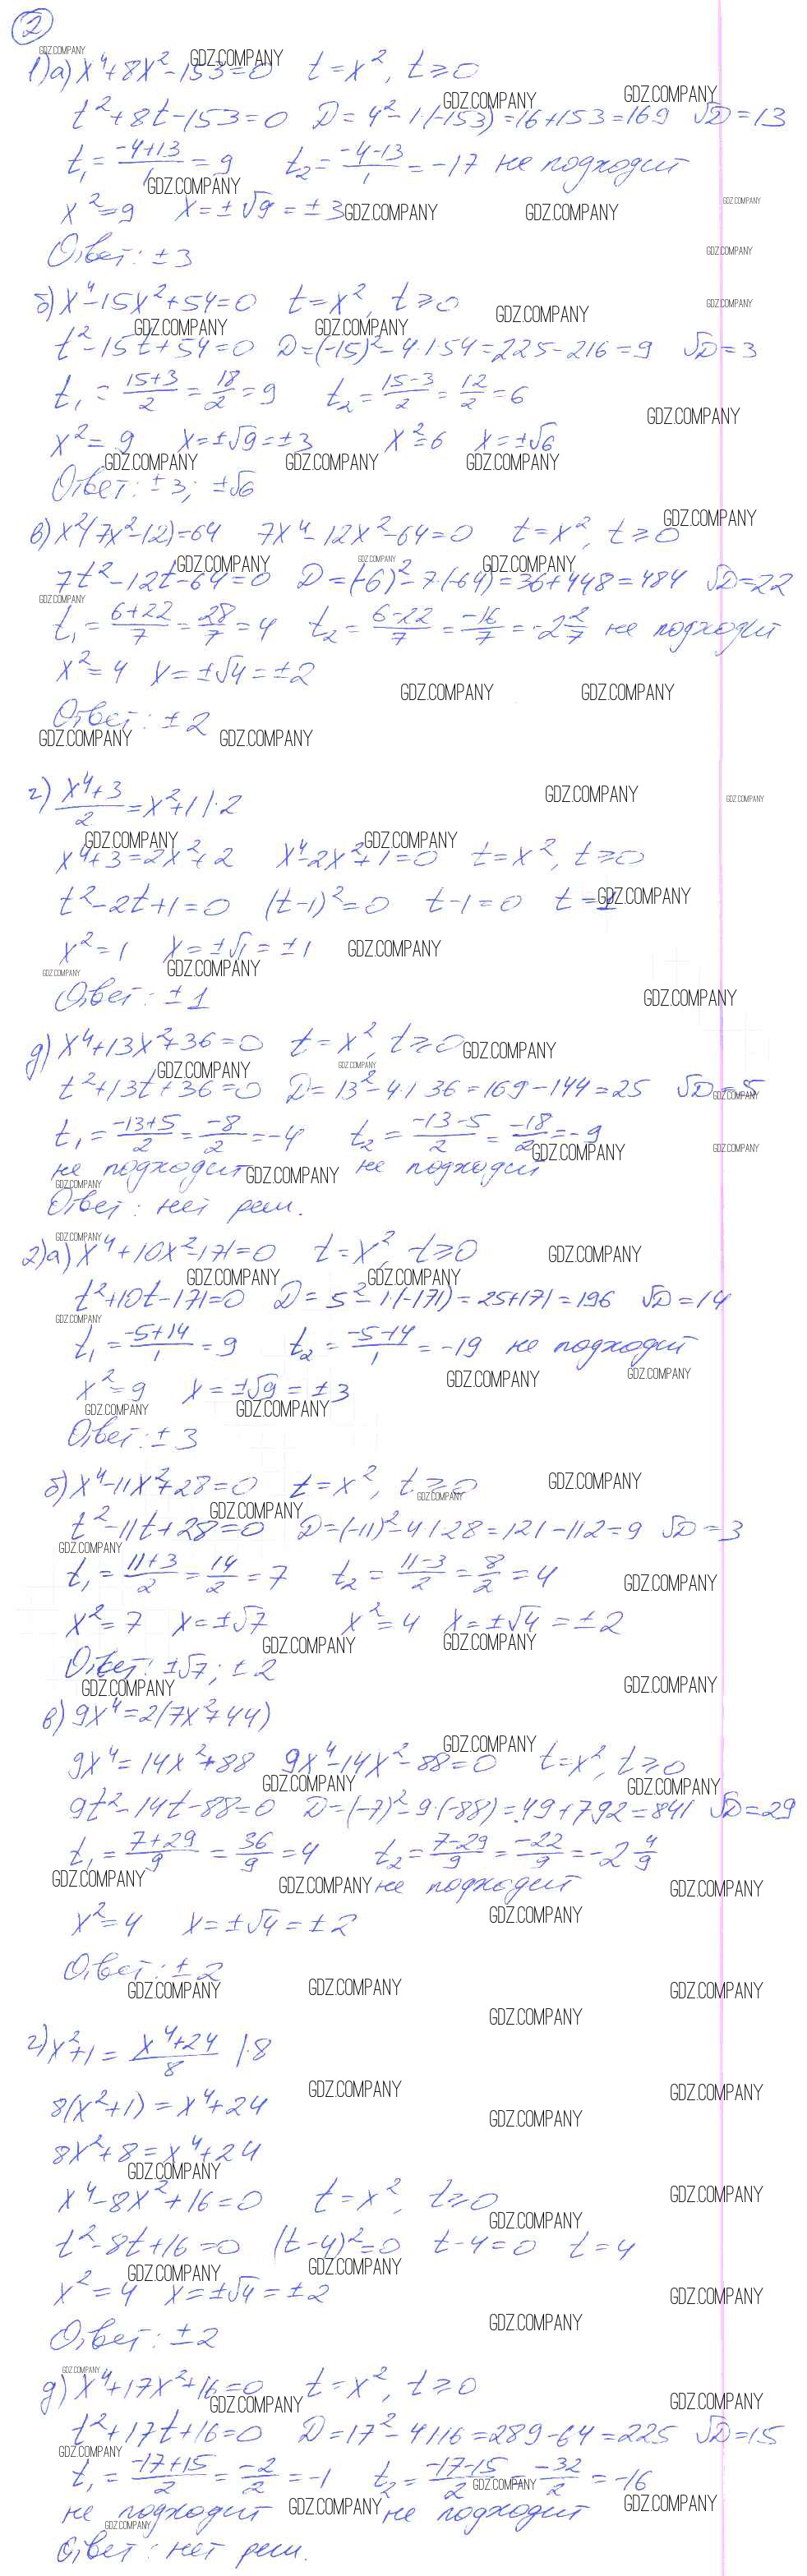 2
1) а) x⁴+8x²-153=0 t=x², t≥0
t²+8t-153=0 D=4²-1·(-153)=16+153=169 √D=13
t₁=(-4+13)/1=9 t₂=(-4-13)/1=-17 не подходит
x²=9 x=±√9=±3
Ответ: ±3
б) x⁴-15x²+54=0 t=x², t≥0
t²-15t+54=0 D=(-15)²-4·1·54=225-216=9 √D=3
t₁=(15+3)/2=18/2=9 t₂=(15-3)/2=12/2=6
x²=9 x=±√9=±3 x²=6 x=±√6
Ответ: ±3; ±√6
в) x²(7x²-12)=64 7x⁴-12x²-64=0 t=x², t≥0
7t²-12t-64=0 D=(-6)²-7·(-64)=36+448=484 √D=22
t₁=(6+22)/7=28/7=4 t₂=(6-22)/7=-16/7=-2 2/7 не подходит
x²=4 x=±√4=±2
Ответ: ±2
г) (x⁴+3)/2=x²+1 |·2
x⁴+3=2x²+2 x⁴-2x²+1=0 t=x², t≥0
t²-2t+1=0 (t-1)²=0 t-1=0 t=1
x²=1 x=±√1=±1
Ответ: ±1
д) x⁴+13x²+36=0 t=x², t≥0
t²+13t+36=0 D=13²-4·1·36=169-144=25 √D=5
t₁=(-13+5)/2=-8/2=-4 t₂=(-13-5)/2=-18/2=-9
не подходит не подходит
Ответ: нет реш.
2) а) x⁴+10x²-171=0 t=x², t≥0
t²+10t-171=0 D=5²-1·(-171)=25+171=196 √D=14
t₁=(-5+14)/1=9 t₂=(-5-14)/1=-19 не подходит
x²=9 x=±√9=±3
Ответ: ±3
б) x⁴-11x²+28=0 t=x², t≥0
t²-11t+28=0 D=(-11)²-4·1·28=121-112=9 √D=3
t₁=(11+3)/2=14/2=7 t₂=(11-3)/2=8/2=4
x²=7 x=±√7 x²=4 x=±√4=±2
Ответ: ±√7; ±2
в) 9x⁴=2(7x²+44)
9x⁴=14x²+88 9x⁴-14x²-88=0 t=x², t≥0
9t²-14t-88=0 D=(-7)²-9·(-88)=49+792=841 √D=29
t₁=(7+29)/9=36/9=4 t₂=(7-29)/9=-22/9=-2 4/9
не подходит
x²=4 x=±√4=±2
Ответ: ±2
г) x²+1=(x⁴+24)/8 |·8
8(x²+1)=x⁴+24
8x²+8=x⁴+24
x⁴-8x²+16=0 t=x², t≥0
t²-8t+16=0 (t-4)²=0 t-4=0 t=4
x²=4 x=±√4=±2
Ответ: ±2
д) x⁴+17x²+16=0 t=x², t≥0
t²+17t+16=0 D=17²-4·1·16=289-64=225 √D=15
t₁=(-17+15)/2=-2/2=-1 t₂=(-17-15)/2=-32/2=-16
не подходит не подходит
Ответ: нет реш.
GDZ.COMPANY